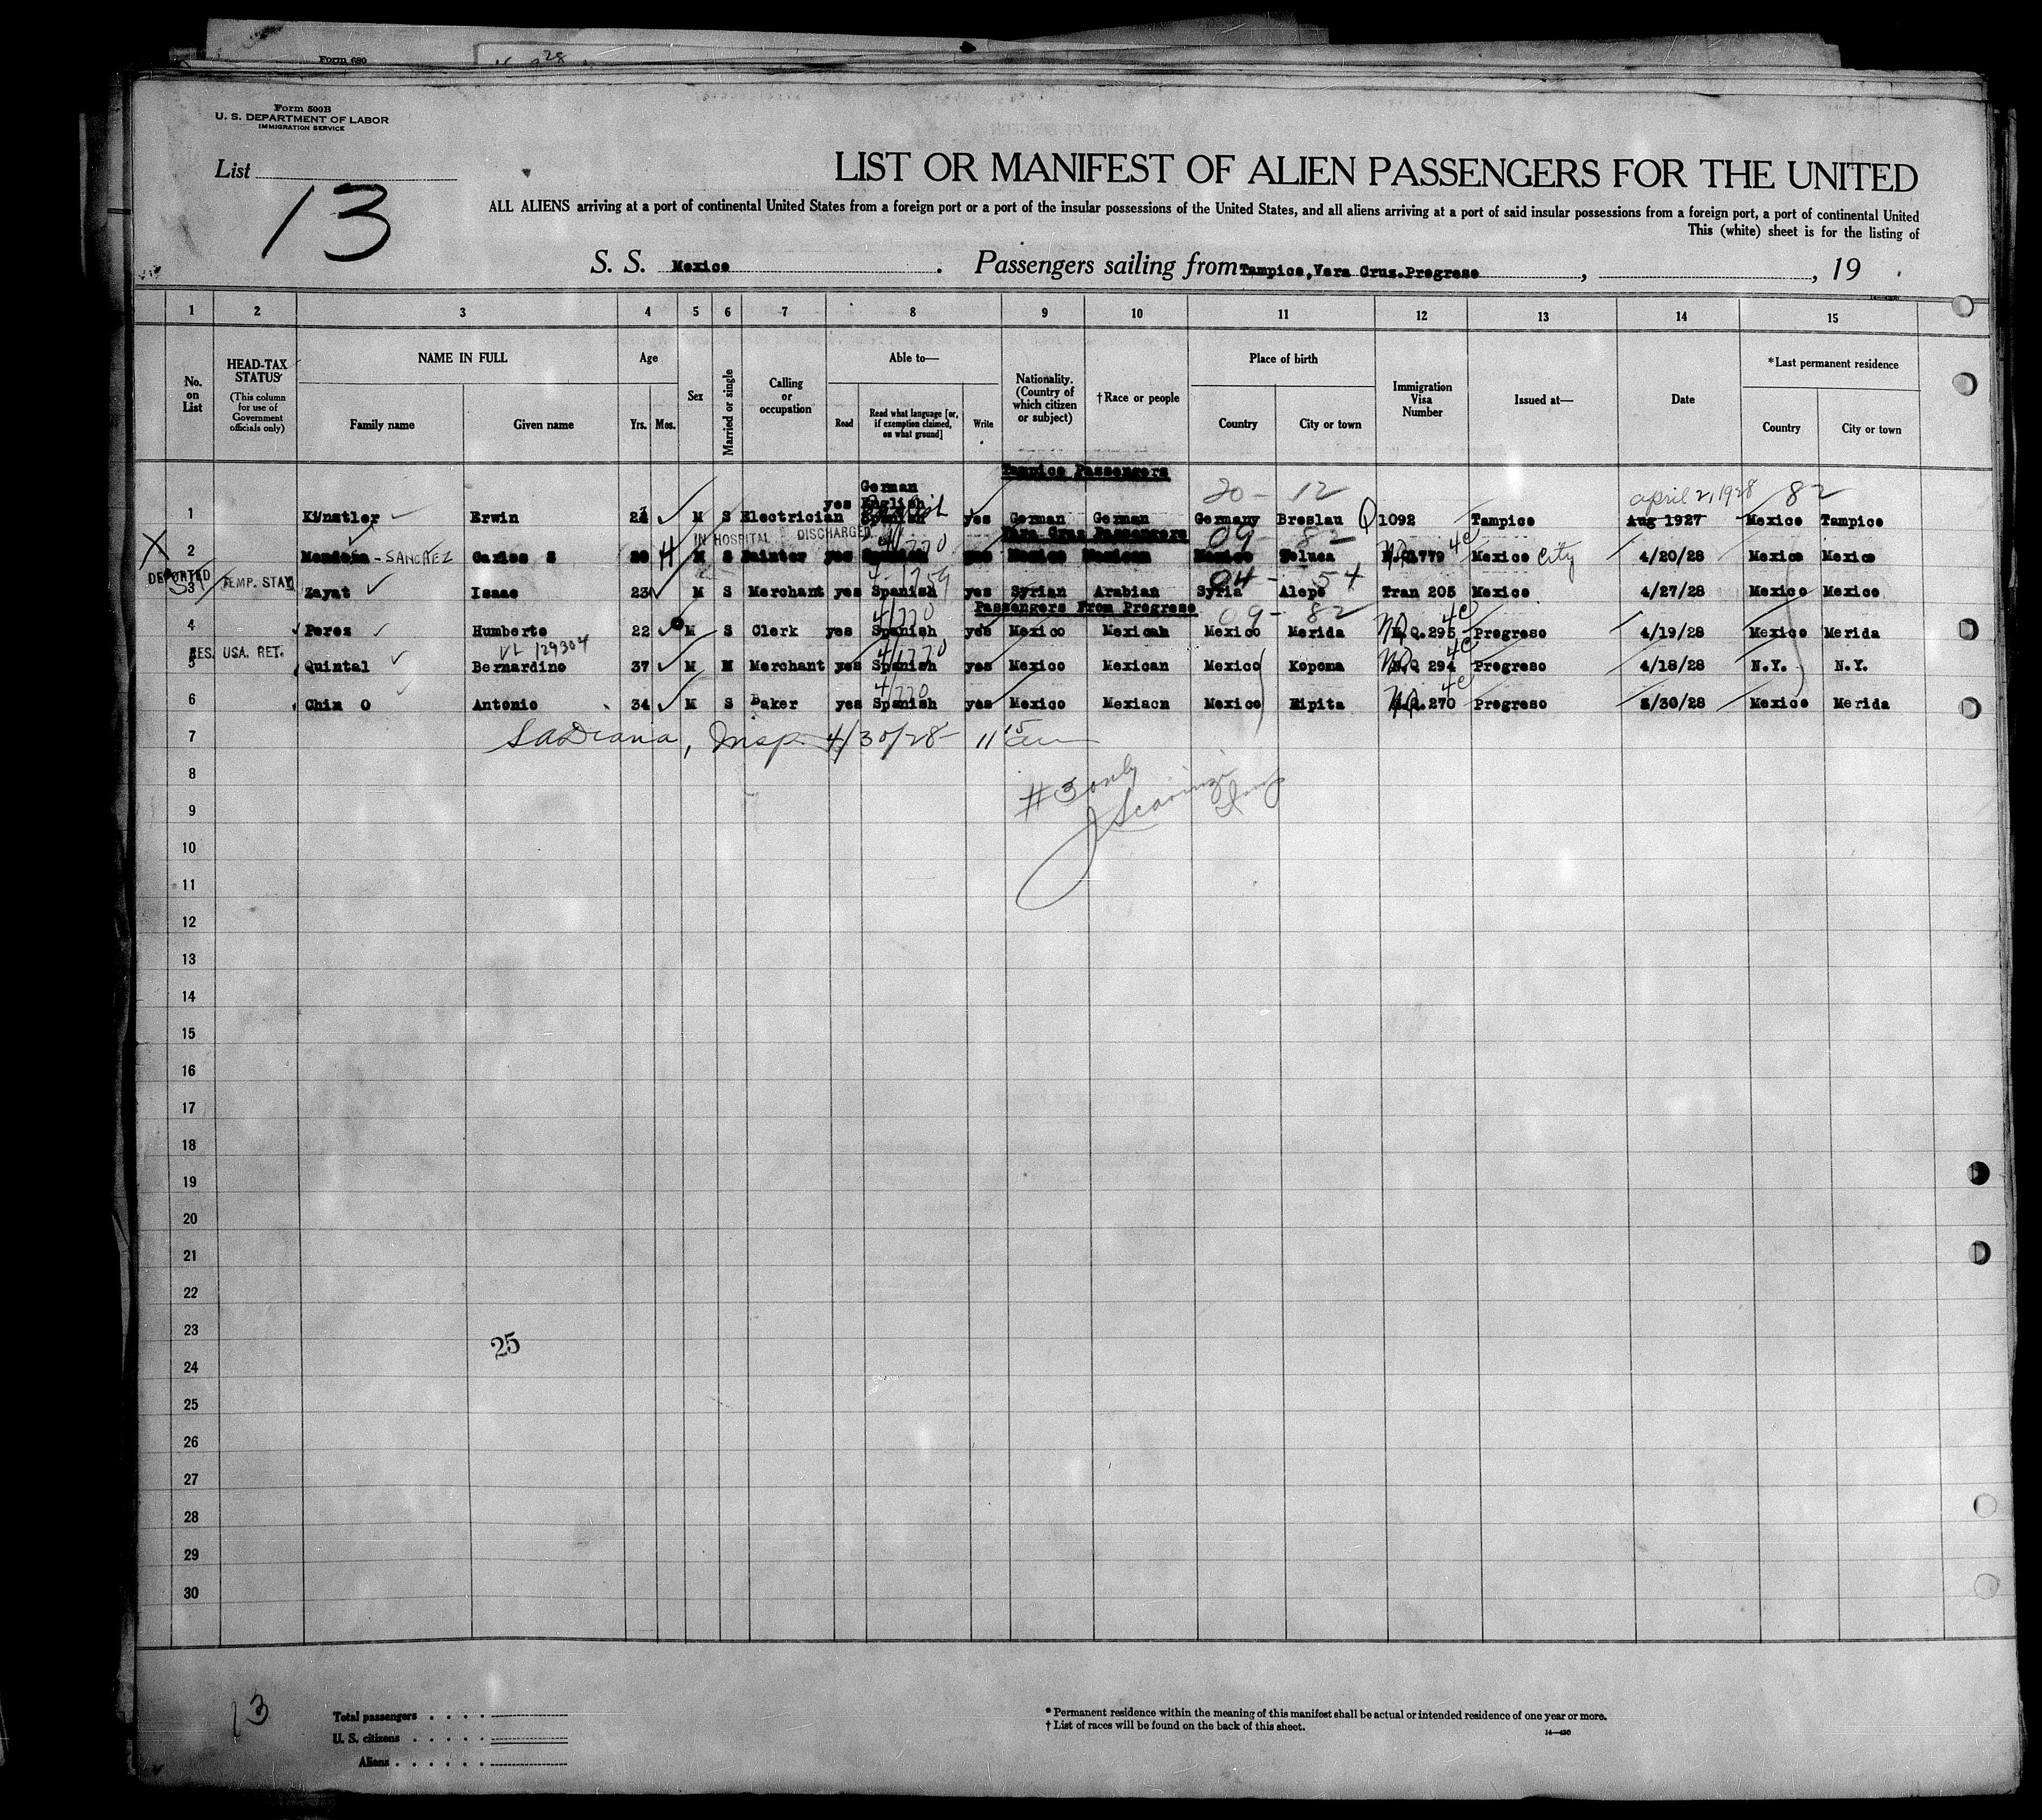 Form 680
28
Form 500B
U. S. DEPARTMENT OF LABOR
IMMIGRATION SERVICE
List
13
LIST OR MANIFEST OF ALIEN PASSENGERS FOR THE UNITED
ALL ALIENS arriving at a port of continental United States from a foreign port or a port of the insular possessions of the United States, and all aliens arriving at a port of said insular possessions from a foreign port, a port of continental United
This (white) sheet is for the listing of
S. S. Mexico. Passengers sailing from Tampico, Vera Cruz. Progreso, , 19
1 2 3 4 5 6 7 8 9 10 11 12 13 14 15
No. on List
HEAD-TAX STATUS
(This column for use of Government officials only)
NAME IN FULL
Family name Given name
Age
Yrs. Mos.
Sex
Married or single
Calling or occupation
Able to—
Read Read what language [or, if exemption claimed, on what ground] Write
Nationality. (Country of which citizen or subject)
†Race or people
Place of birth
Country City or town
Immigration Visa Number
Issued at—
Date
*Last permanent residence
Country City or town
Tampico Passengers
German
English
20 - 12 april 2, 1928 82
1 Kinstler Erwin M S Electrician yes Spanish yes German German Germany Breslau Q 1092 Tampico Aug 1927 Mexico Tampico
IN HOSPITAL DISCHARGED
Vera Cruz Passengers
09 - 82
X 2 Mendoza - SANCHEZ Carlos S M S Painter yes Spanish yes Mexico Mexican Mexico Toluca 1779 4c Mexico City 4/20/28 Mexico Mexico
DEPORTED
04 - 54
3 TEMP. STAY Zayat Isaac 23 M S Merchant yes Spanish yes Syrian Arabian Syria Alepo Tran 205 Mexico 4/27/28 Mexico Mexico
Passengers From Progreso
09 - 82
4 Perez Humberto 22 M S Clerk yes Spanish yes Mexico Mexican Mexico Merida N.Q. 295 4c Progreso 4/19/28 Mexico Merida
RES. USA. RET. VL 129304
5 Quintal Bernardino 37 M M Merchant yes Spanish yes Mexico Mexican Mexico Kopoma N.Q 294 4c Progreso 4/18/28 N.Y. N.Y.
6 Chim O Antonio 34 M S Baker yes Spanish yes Mexico Mexiacn Mexico Hipita N.Q. 270 4c Progreso 3/30/28 Mexico Merida
7 Insp. 4/30/28 11 15 am
8
#3 only
9
10
11
12
13
14
15
16
17
18
19
20
21
22
23
25
24
25
26
27
28
29
30
13
Total passengers
U. S. citizens
Aliens
*Permanent residence within the meaning of this manifest shall be actual or intended residence of one year or more.
†List of races will be found on the back of this sheet.
14—430